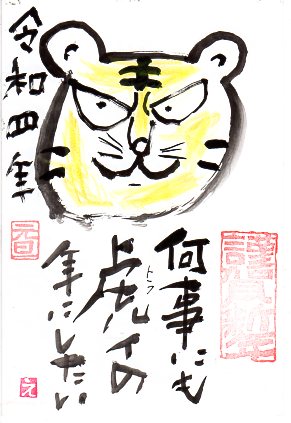 令和四年
元旦
謹賀新年
何事にも
トラ
虎イの
年にしたい
え